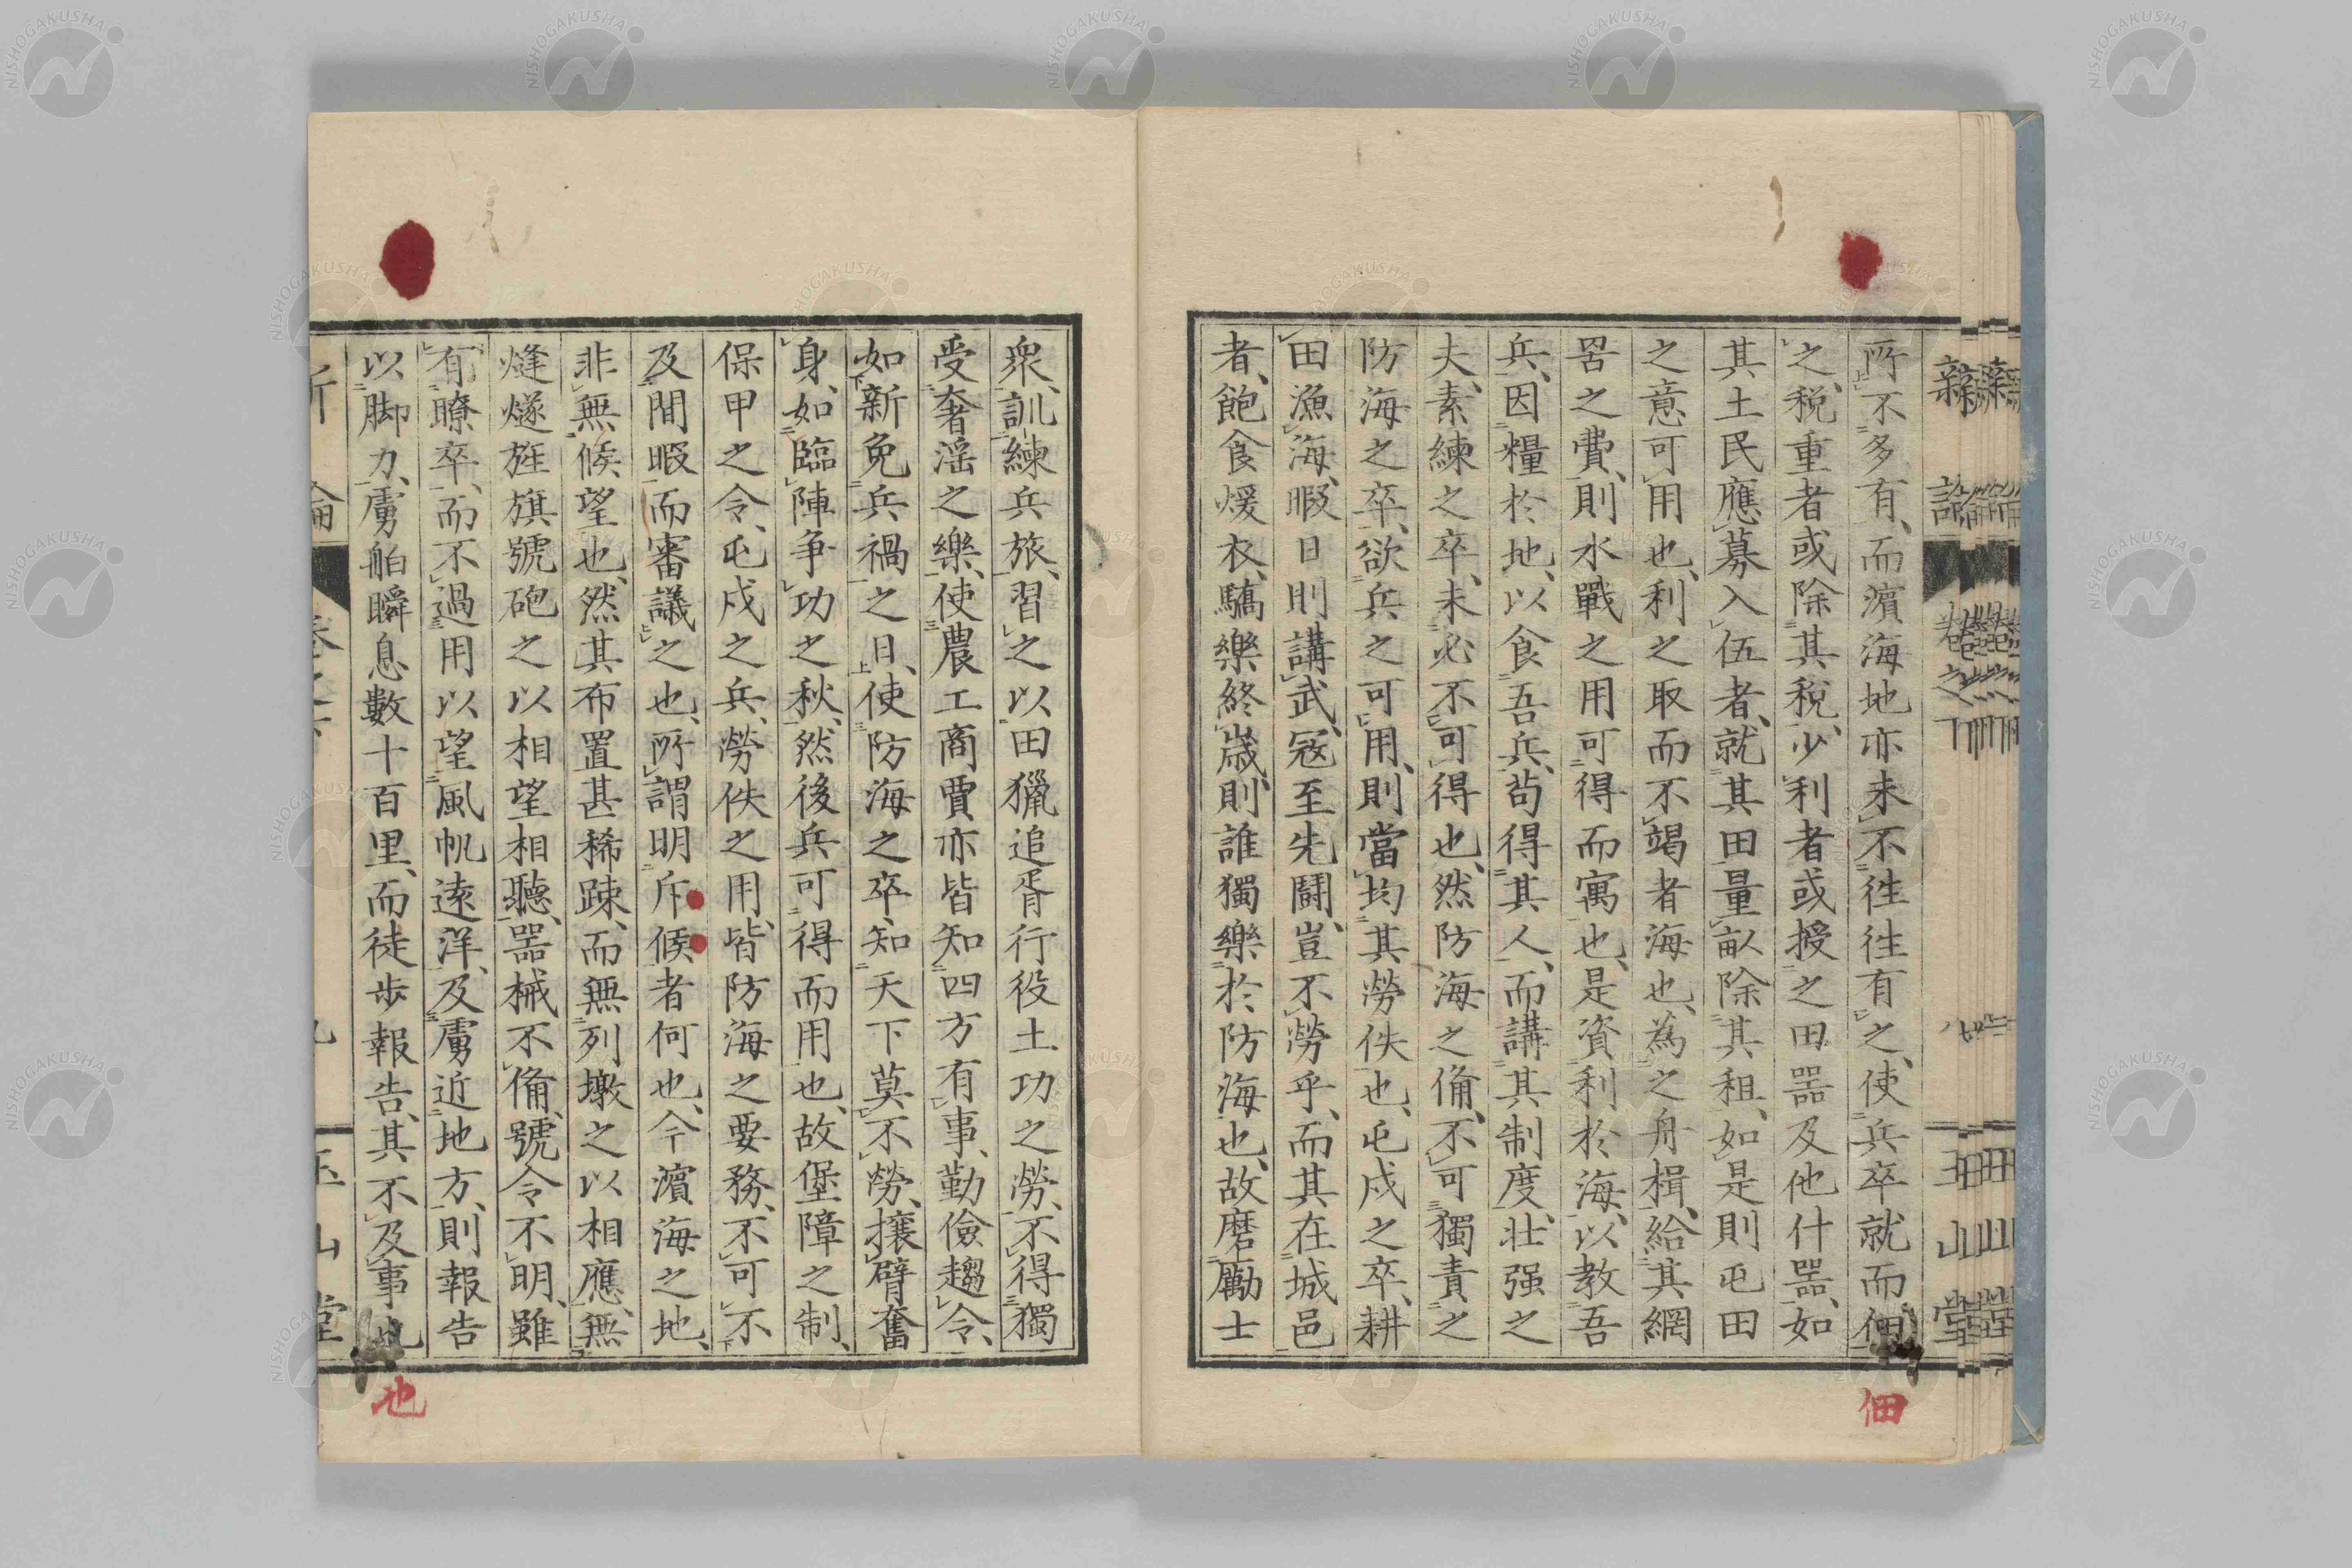 新論 卷之下 八 玉山堂
所不多有、而濵海地亦未不徃徃有之、使兵卒就而佃
之、税重者或除其税、少利者或授之田器及他什器、如
其土民應募入伍者、就其田量畝除其租、如是則屯田
之意可用也、利之取而不竭者海也、為之舟楫、給其網
罟之費、則水戰之用可得而寓也、是資利於海、以教吾
兵、因糧於地、以食吾兵、苟得其人、而講其制度、壮强之
夫、素練之卒、未必不可得也、然防海之備、不可獨責之
防海之卒、欲兵之可用、則當均其勞佚也、屯戍之卒、耕
田漁海、暇日則講武、冦至先鬪、豈不勞乎、而其在城邑
者、飽食煖衣、驕樂終歳、則誰獨樂於防海也、故磨勵士
佃
衆、訓練兵旅、習之以田獵追胥行役土功之勞、不得獨
受奢滛之樂、使農工商賈亦皆知四方有事、勤儉趨令、
如新免兵禍之日、使防海之卒、知天下莫不勞、攘臂奮
身、如臨陣争功之秋、然後兵可得而用也、故堡障之制、
保甲之令、屯戍之兵、勞佚之用、皆防海之要務、不可不
及間暇而審議之也、所謂明斥候者何也、今濵海之地、
非無候望也、然其布置甚稀踈、而無列墩之以相應、無
烽燧旌旗號砲之以相望相聽、器械不備、號令不明、雖
有瞭卒、而不過用以望風帆遠洋、及虜近地方、則報告
以脚力、虜舶瞬息數十百里、而徒步報告、其不及事也
也
新論 玉山堂